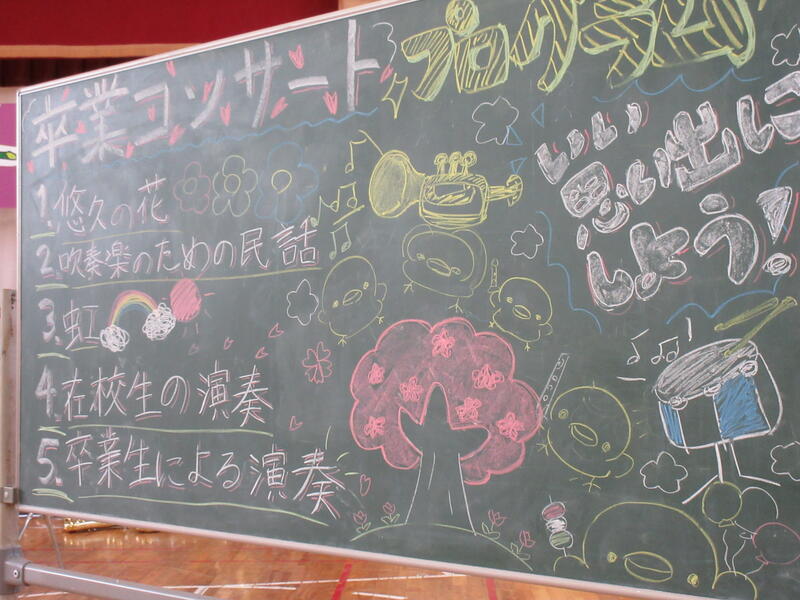 卒業コンサート プログラム
1. 悠久の花
2. 吹奏楽のための民話
3. 虹
4. 在校生の演奏
5. 卒業生による演奏
いい
思い出に
しよう!